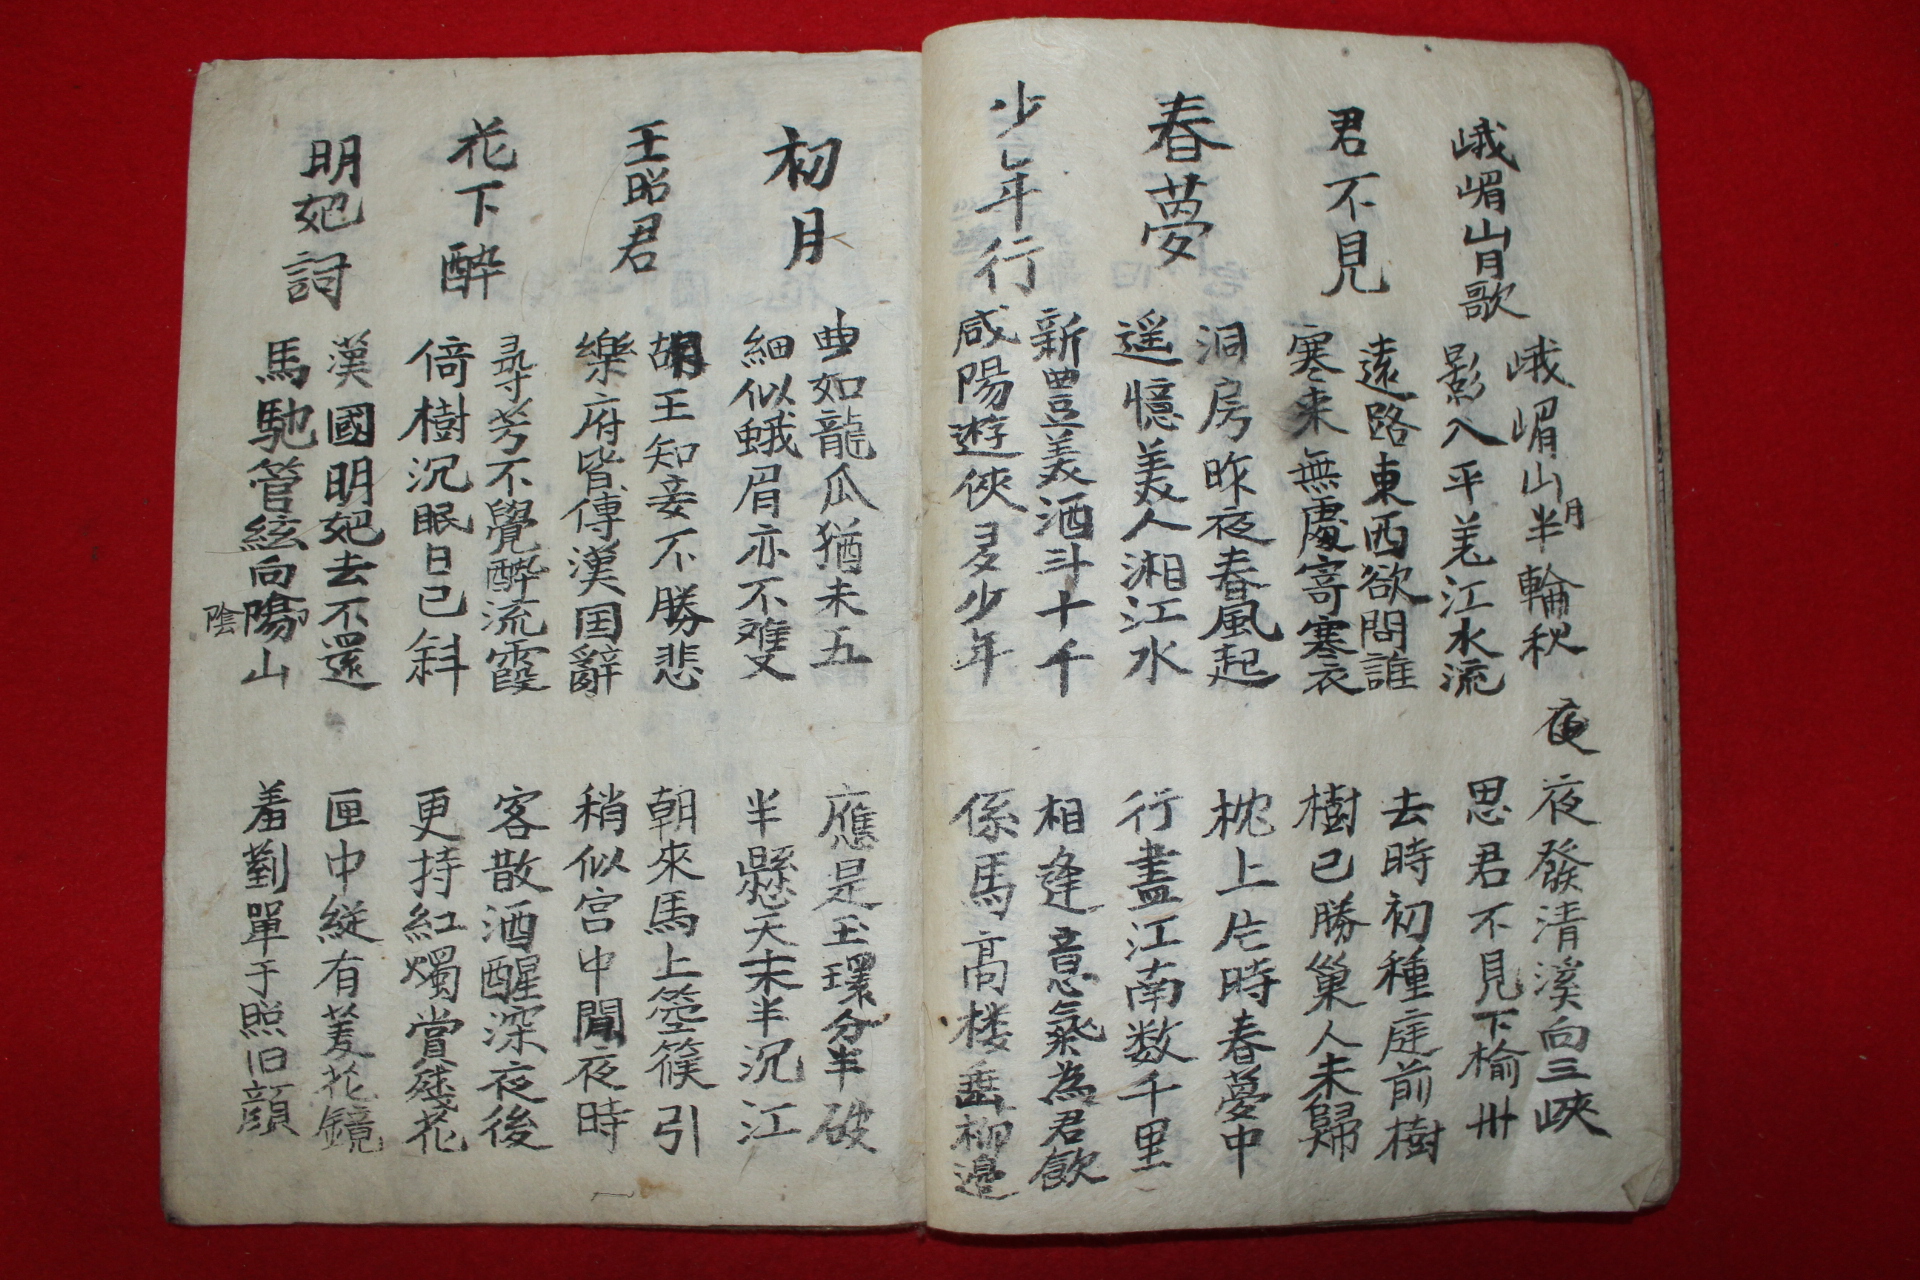 峨嵋山月歌
峨嵋山月半輪秋
影入平羌江水流
夜
夜發清溪向三峽
思君不見下楡州
君不見
遠路東西欲問誰
寒来無處寄寒衣
去時初種庭前樹
樹已勝巢人未歸
春夢
洞房昨夜春風起
遥憶美人湘江水
枕上片時春夢中
行盡江南数千里
少年行
新豊美酒斗十千
咸陽遊俠多少年
相逢意氣為君飲
係馬高楼垂柳邊
初月
曲如龍瓜猶未五
細似蛾眉亦不難
應是玉環分半破
半懸天末半沉江
王昭君
胡王知妾不勝悲
樂府皆傳漢国辭
朝來馬上箜篌引
稍似宮中閒夜時
花下醉
尋芳不覺醉流霞
倚樹沉眠日已斜
客散酒醒深夜後
更持紅燭賞殘花
明妃詞
漢國明妃去不還
馬馳管絃向陽山
陰
匣中縦有菱花鏡
羞對單于照旧顔